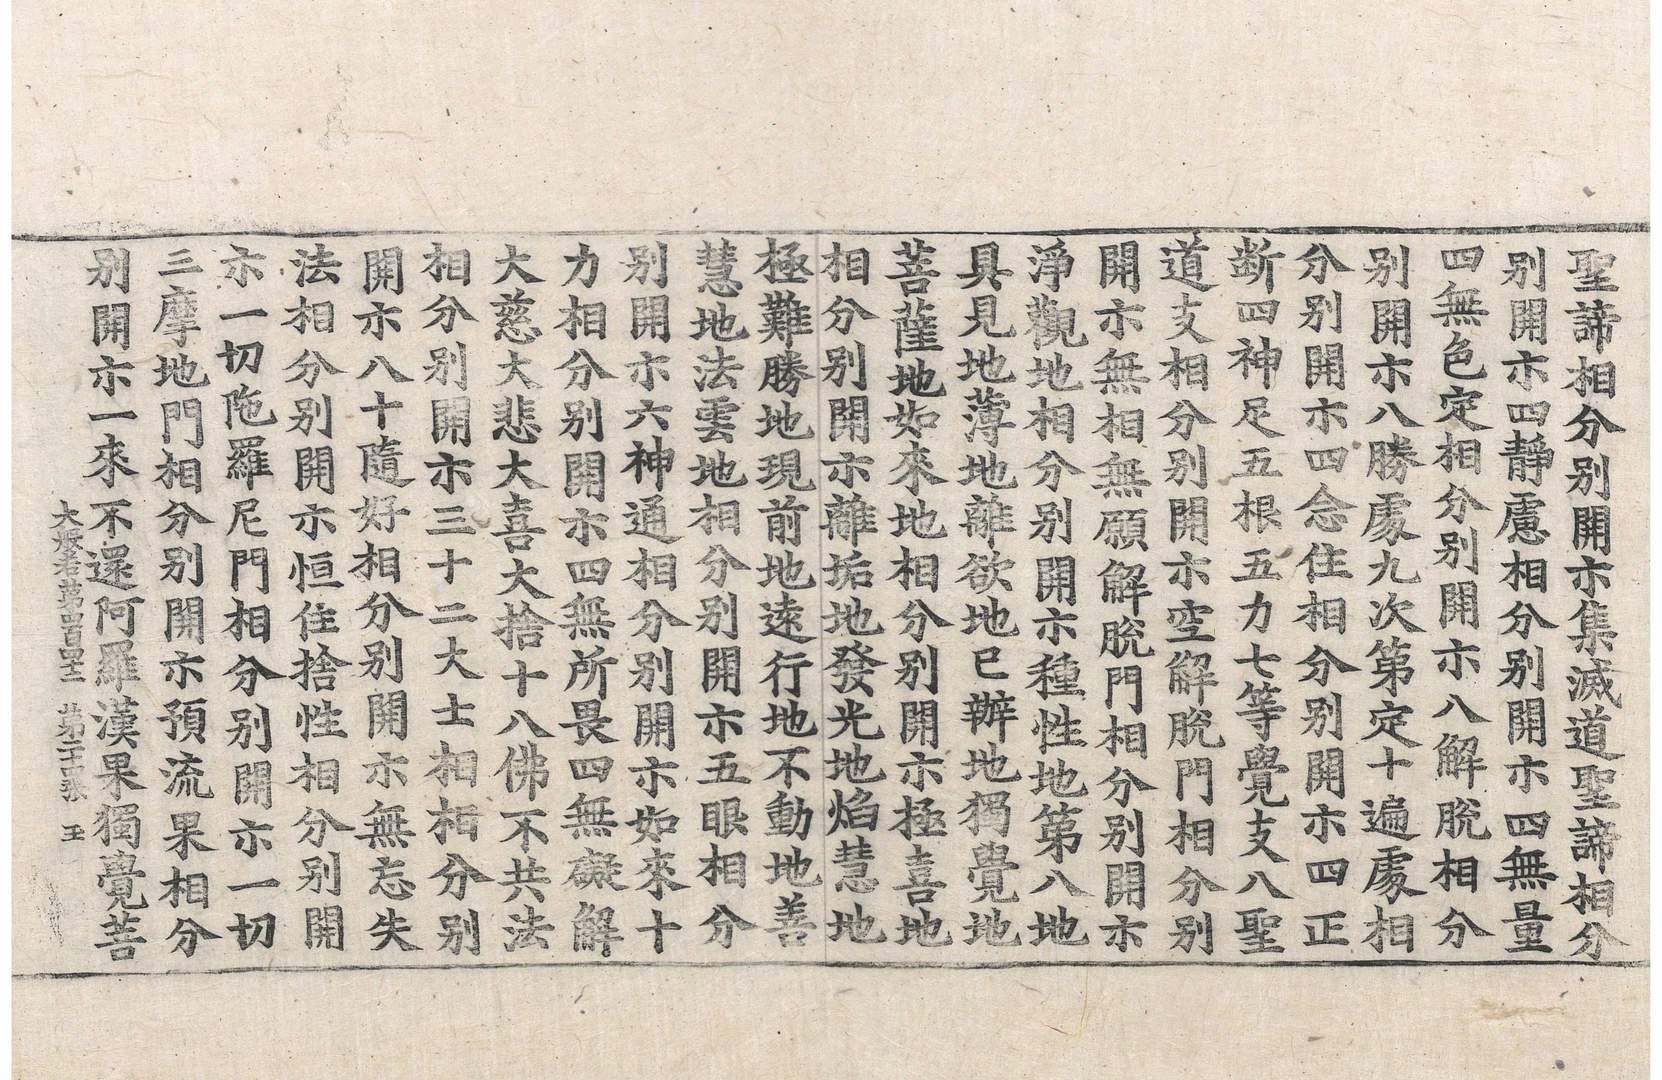 聖諦相分别開示集滅道聖諦相分
别開示四靜慮相分别開示四無量
四無色定相分别開示八解脫相分
别開示八勝處九次第定十遍處相
分别開示四念住相分别開示四正
斷四神足五根五力七等覺支八聖
道支相分别開示空解脫門相分别
開示無相無願解脫門相分别開示
淨觀地相分别開示種性地第八地
具見地薄地離欲地已辦地獨覺地
菩薩地如來地相分别開示極喜地
相分别開示離垢地發光地焰慧地
極難勝地現前地遠行地不動地善
慧地法雲地相分别開示五眼相分
别開示六神通相分别開示如來十
力相分别開示四無所畏四無礙解
大慈大悲大喜大捨十八佛不共法
相分别開示三十二大士相相分别
開示八十隨好相分别開示無忘失
法相分别開示恒住捨性相分别開
示一切陁羅尼門相分别開示一切
三摩地門相分别開示預流果相分
别開示一來不還阿羅漢果獨覺菩
大般若第四百四十二 第 張